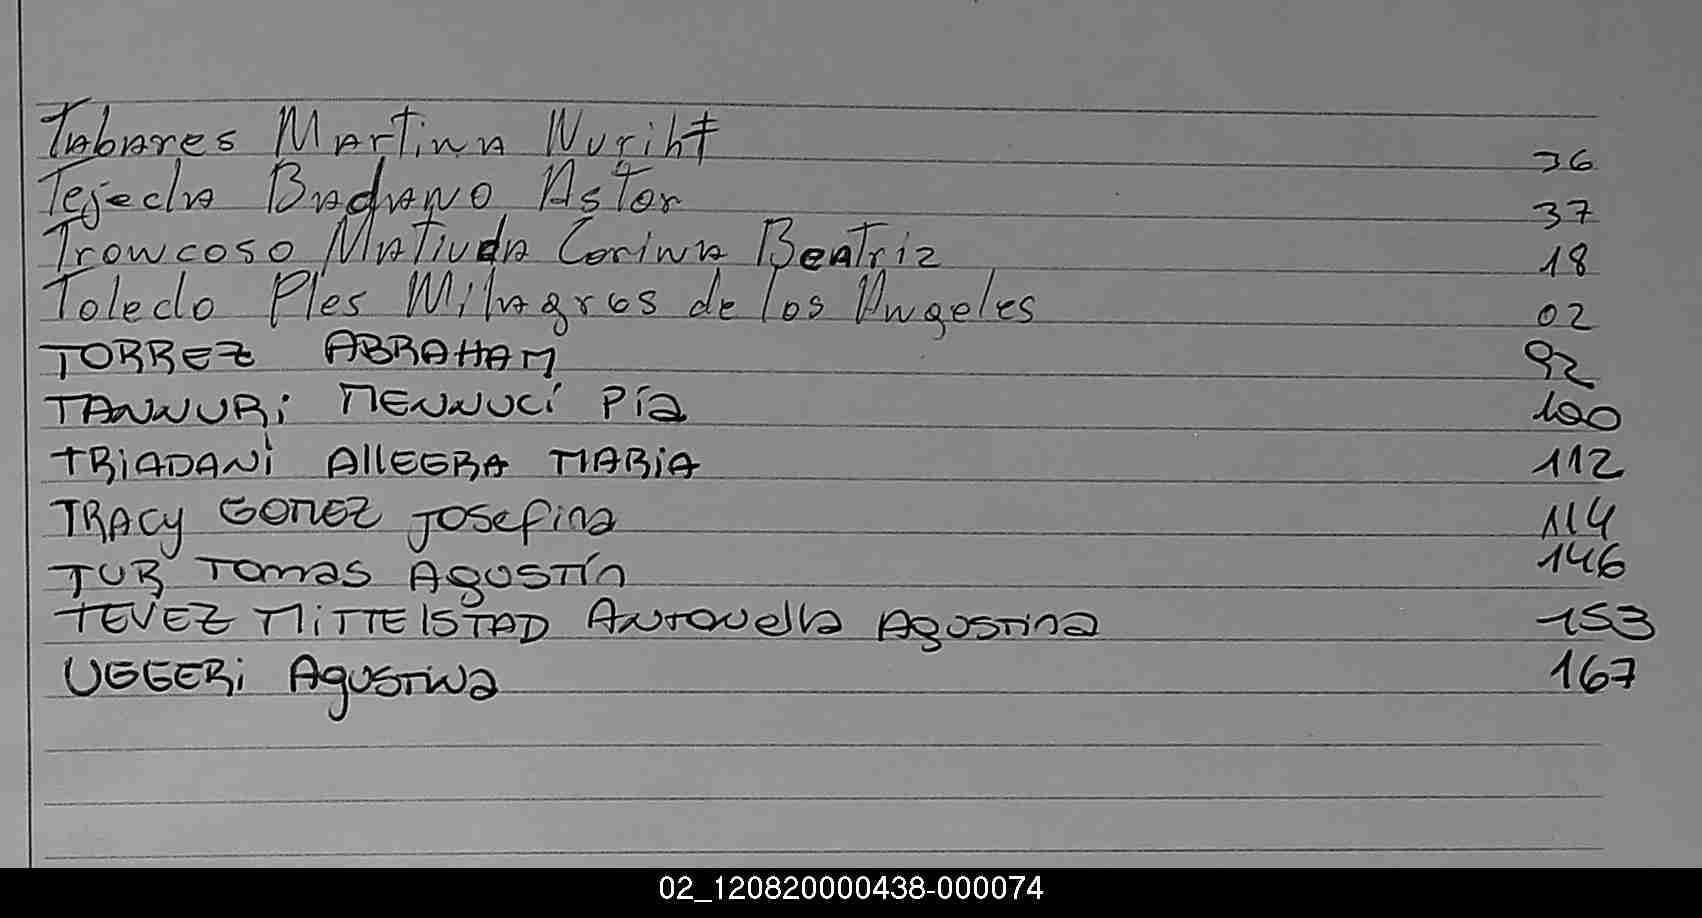 Tabares Martina Nuriht 36
Tejeda Badano Astor 37
Troncoso Matiuda Corina Beatriz 18
Toledo Ples Milagros de los Angeles 02
TORREZ ABRAHAM 92
TANNURi MENNUCÍ PÍa 100
TRiADANi AllEGRA MARiA 112
TRACy GOMEZ Josefina 114
TUR Tomas AgUSTÍn 146
TEVEZ MiTTElSTAD Antonella AgUSTina 153
UGGERi AgUSTina 167
02_120820000438-000074